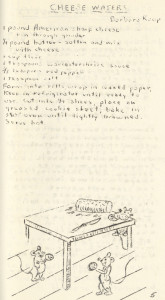 CHEESE WAFERS
Barbara Knap
1 pound American sharp cheese
run through grinder
¼ pound butter - soften and mix
with cheese
1 cup flour
1 teaspoon Worcestershire sauce
½ teaspoon red pepper
1 teaspoon salt
Form into rolls, wrap in waxed paper,
Keep in refrigerator until ready to
use. Cut into ¼ slices, place on
greased cookie sheet, bake in
350° oven until lightly browned.
Serve hot